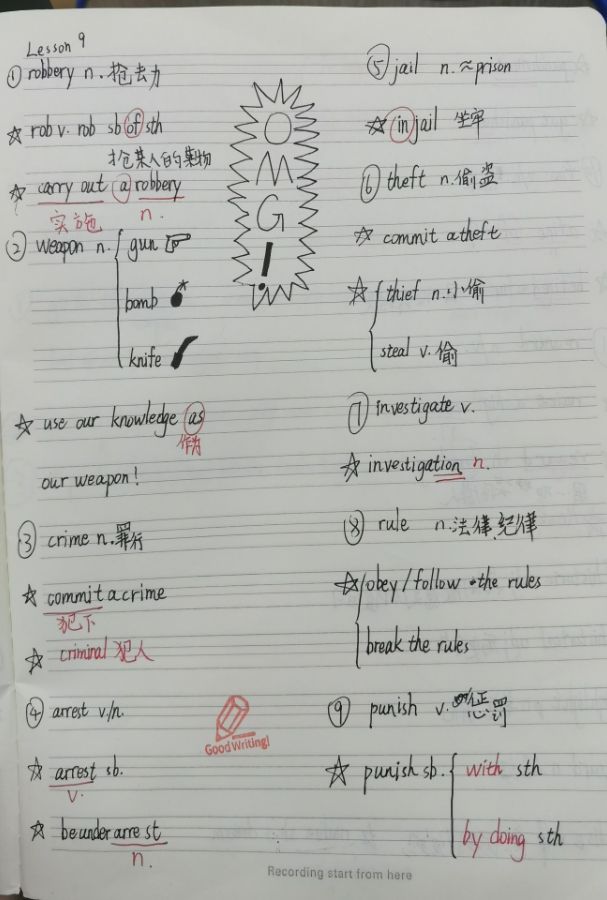 Lesson 9
① robbery n. 抢去力
☆ rob v. rob sb of sth
抢某人的某物
☆ carry out a robbery
实施 n.
② weapon n. { gun
bomb
knife
☆ use our knowledge as
作为
our weapon!
③ crime n. 罪行
☆ commit a crime
犯下
☆ criminal 犯人
④ arrest v./n.
☆ arrest sb.
v.
☆ be under arrest
n.
OMG!
Good Writing!
⑤ jail n. ≈ prison
☆ in jail 坐牢
⑥ theft n. 偷盗
☆ commit a theft
☆ { thief n. 小偷
steal v. 偷
⑦ investigate v.
☆ investigation n.
⑧ rule n. 法律、纪律
☆ { obey / follow the rules
break the rules
⑨ punish v. 惩罚
☆ punish sb. { with sth
by doing sth
Recording start from here